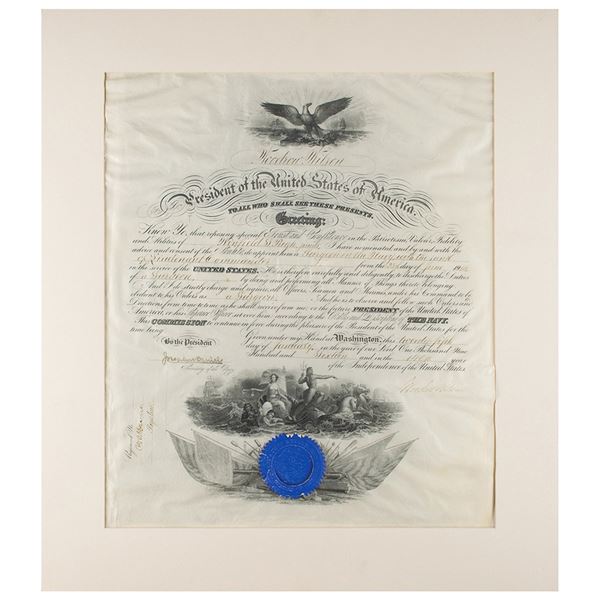 Woodrow Wilson
President of the United States of America.
TO ALL WHO SHALL SEE THESE PRESENTS,
Greeting:
Know Ye, that reposing special Trust and Confidence in the Patriotism, Valor, Fidelity
and Abilities of I have nominated, and by and with the
advice and consent of the Senate, do appoint him a Surgeon in the Navy with the rank
of Lieutenant Commander from the day of June
in the service of the UNITED STATES. He is therefore carefully and diligently to discharge the Duties
of a Surgeon by doing and performing all Manner of Things thereto belonging.
And I do strictly charge and require all Officers, Seamen and Marines, under his Command to be
obedient to his Orders as a Surgeon And he is to observe and follow such Orders and
Directions from time to time as he shall receive from me, or the future PRESIDENT of the United States of
America, or his Superior Officer set over him, according to the Rules and Discipline of THE NAVY.
This COMMISSION to continue in force during the pleasure of the President of the United States for the
time being.
By the President
Given under my Hand at Washington, this twenty fifth
day of in the year of our Lord One Thousand Nine
Hundred and Sixteen and in the year
of the Independence of the United States.
Josephus Daniels
Secretary of the Navy.